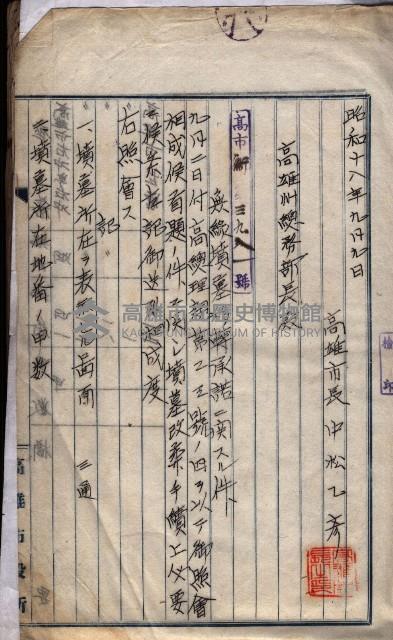 昭和十八年九月九日
高雄市長 中松乙彥
高雄州總務部長殿
高市 三九 號
無緣墳墓 承諾ニ關スル件
九月二日付高總理 第二三號ノ四ヲ以テ御照會
相成候首題ノ件ニ關シ墳墓改葬手續上必要
ニ候條左記御送附相成度
右照會ス
記
一、墳墓所在ヲ表 圖面 三通
二、墳墓所在地番、甲數
高雄市役所
高雄市立歷史博物館
KAOHSIUNG MUSEUM OF HISTORY